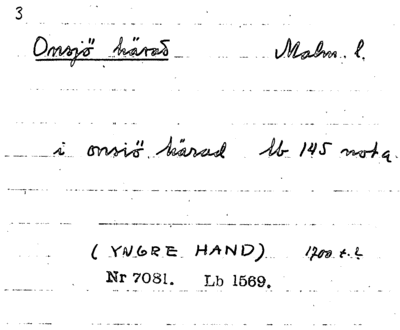 3
Onsjö härad Malm. l.
i onsiö härad lb 145 not a.
(YNGRE HAND) 1700 t.
Nr 7081. Lb 1569.